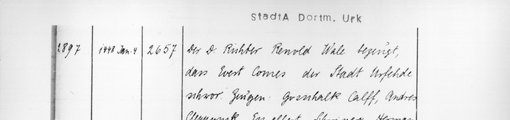 StadtA Dortm. Urk
2897 1448 Jan. 4 2657 Der D. Richter Renold Wale bezeugt,
dass Evert Comes der Stadt Urfehde
schwor. Zeugen: Gosschalk Calff, Andres